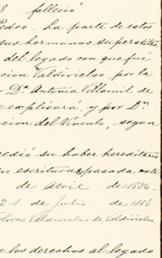 8 falleció
Pedro, la parte de estos
sus hermanos superstites
del legado con que fué
cion Valdivielso por la
Dª Antonia Villamil de
explicará, y por Dⁿ
cion del Vinculo, segun
cedió su haber hereditario
en escritura pasada ante
de Abril de 1886
21 de Julio de 1886
Dolores Valdivielso de Valdivielso
los derechos al legado